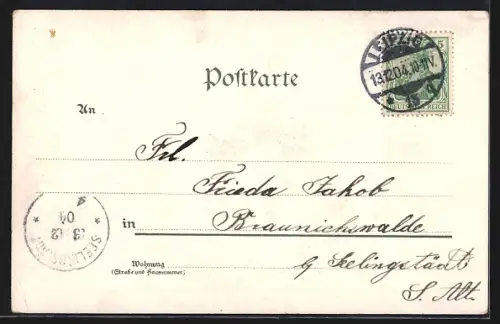 LEIPZIG
13.12.04.10-11V.
5
DEUTSCHES REICH
Postkarte
An
Frl.
Frieda Jakob
in Braunichswalde
Wohnung
(Straße und Hausnummer)
b/ Seelingstädt
S. Alt.
04
13 12